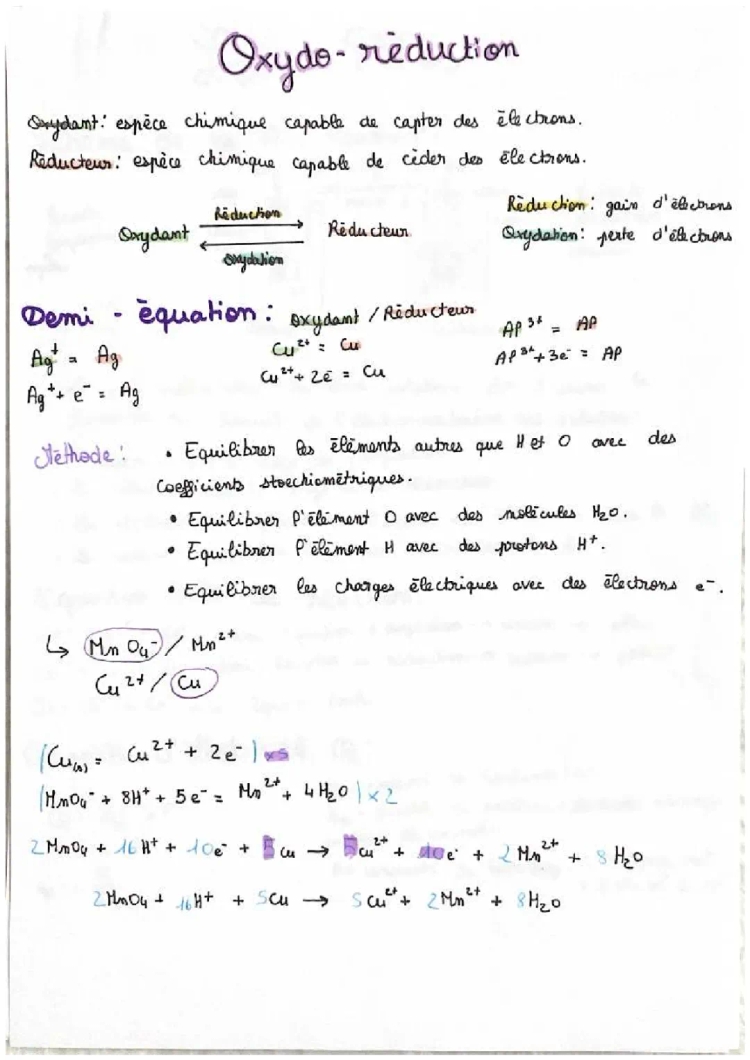 Oxydo-réduction
Oxydant : espèce chimique capable de capter des électrons.
Réducteur : espèce chimique capable de céder des électrons.
Réduction
Oxydant ⇄ Réducteur
Oxydation
Réduction : gain d'électrons
Oxydation : perte d'électrons
Demi-équation : Oxydant / Réducteur
Ag⁺ = Ag
Ag⁺ + e⁻ = Ag
Cu²⁺ = Cu
Cu²⁺ + 2e⁻ = Cu
Al³⁺ = Al
Al³⁺ + 3e⁻ = Al
Méthode :
• Equilibrer les éléments autres que H et O avec des
coefficients stoechiométriques.
• Equilibrer l'élément O avec des molécules H₂O.
• Equilibrer l'élément H avec des protons H⁺.
• Equilibrer les charges électriques avec des électrons e⁻.
↳ MnO₄⁻ / Mn²⁺
Cu²⁺ / Cu
(Cu₍s₎ = Cu²⁺ + 2e⁻) ×5
(MnO₄⁻ + 8H⁺ + 5e⁻ = Mn²⁺ + 4H₂O) ×2
2MnO₄ + 16H⁺ + 10e⁻ + 5Cu → 5Cu²⁺ + 10e⁻ + 2Mn²⁺ + 8H₂O
2MnO₄ + 16H⁺ + 5Cu → 5Cu²⁺ + 2Mn²⁺ + 8H₂O